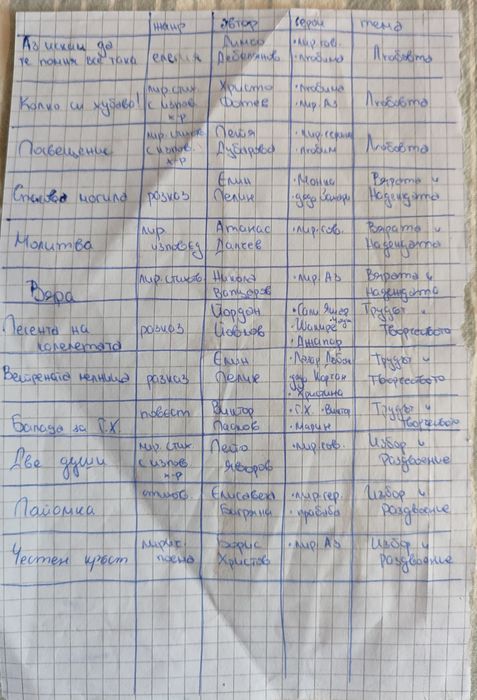 жанр автор герои тема
Аз искам да те помня все така елегия Димчо Дебелянов • лир. гов. • любима Любовта
Колко си хубава! лир. стих. с изпов. х-р Христо Фотев • любима • лир. Аз Любовта
Посвещение лир. стихот. с изпов. х-р Петя Дубарова • лир. героиня • любим Любовта
Спасова могила разказ Елин Пелин • Монка • дядо Захари Вярата и Надеждата
Молитва лир. изповед Атанас Далчев • лир. гов. Вярата и Надеждата
Вяра лир. стихотв. Никола Вапцаров • лир. Аз Вярата и Надеждата
Песента на колелетата разказ Йордан Йовков • Сали Яшар • Шакире • Джапар Трудът и Творчеството
Ветрената мелница разказ Елин Пелин • Лазар Дъбак • дядо Корчан • Христина Трудът и Творчеството
Балада за Г.Х. повест Виктор Пасков • Г.Х. • Виктор • Марин Трудът и Творчеството
Две души лир. стих. с изпов. х-р Пейо Яворов • лир. гов. Избор и Раздвоение
Потомка стихотв. Елисавета Багряна • лир. гер. • прабаба Избор и Раздвоение
Честен кръст лирич. поема Борис Христов • лир. Аз Избор и Раздвоение